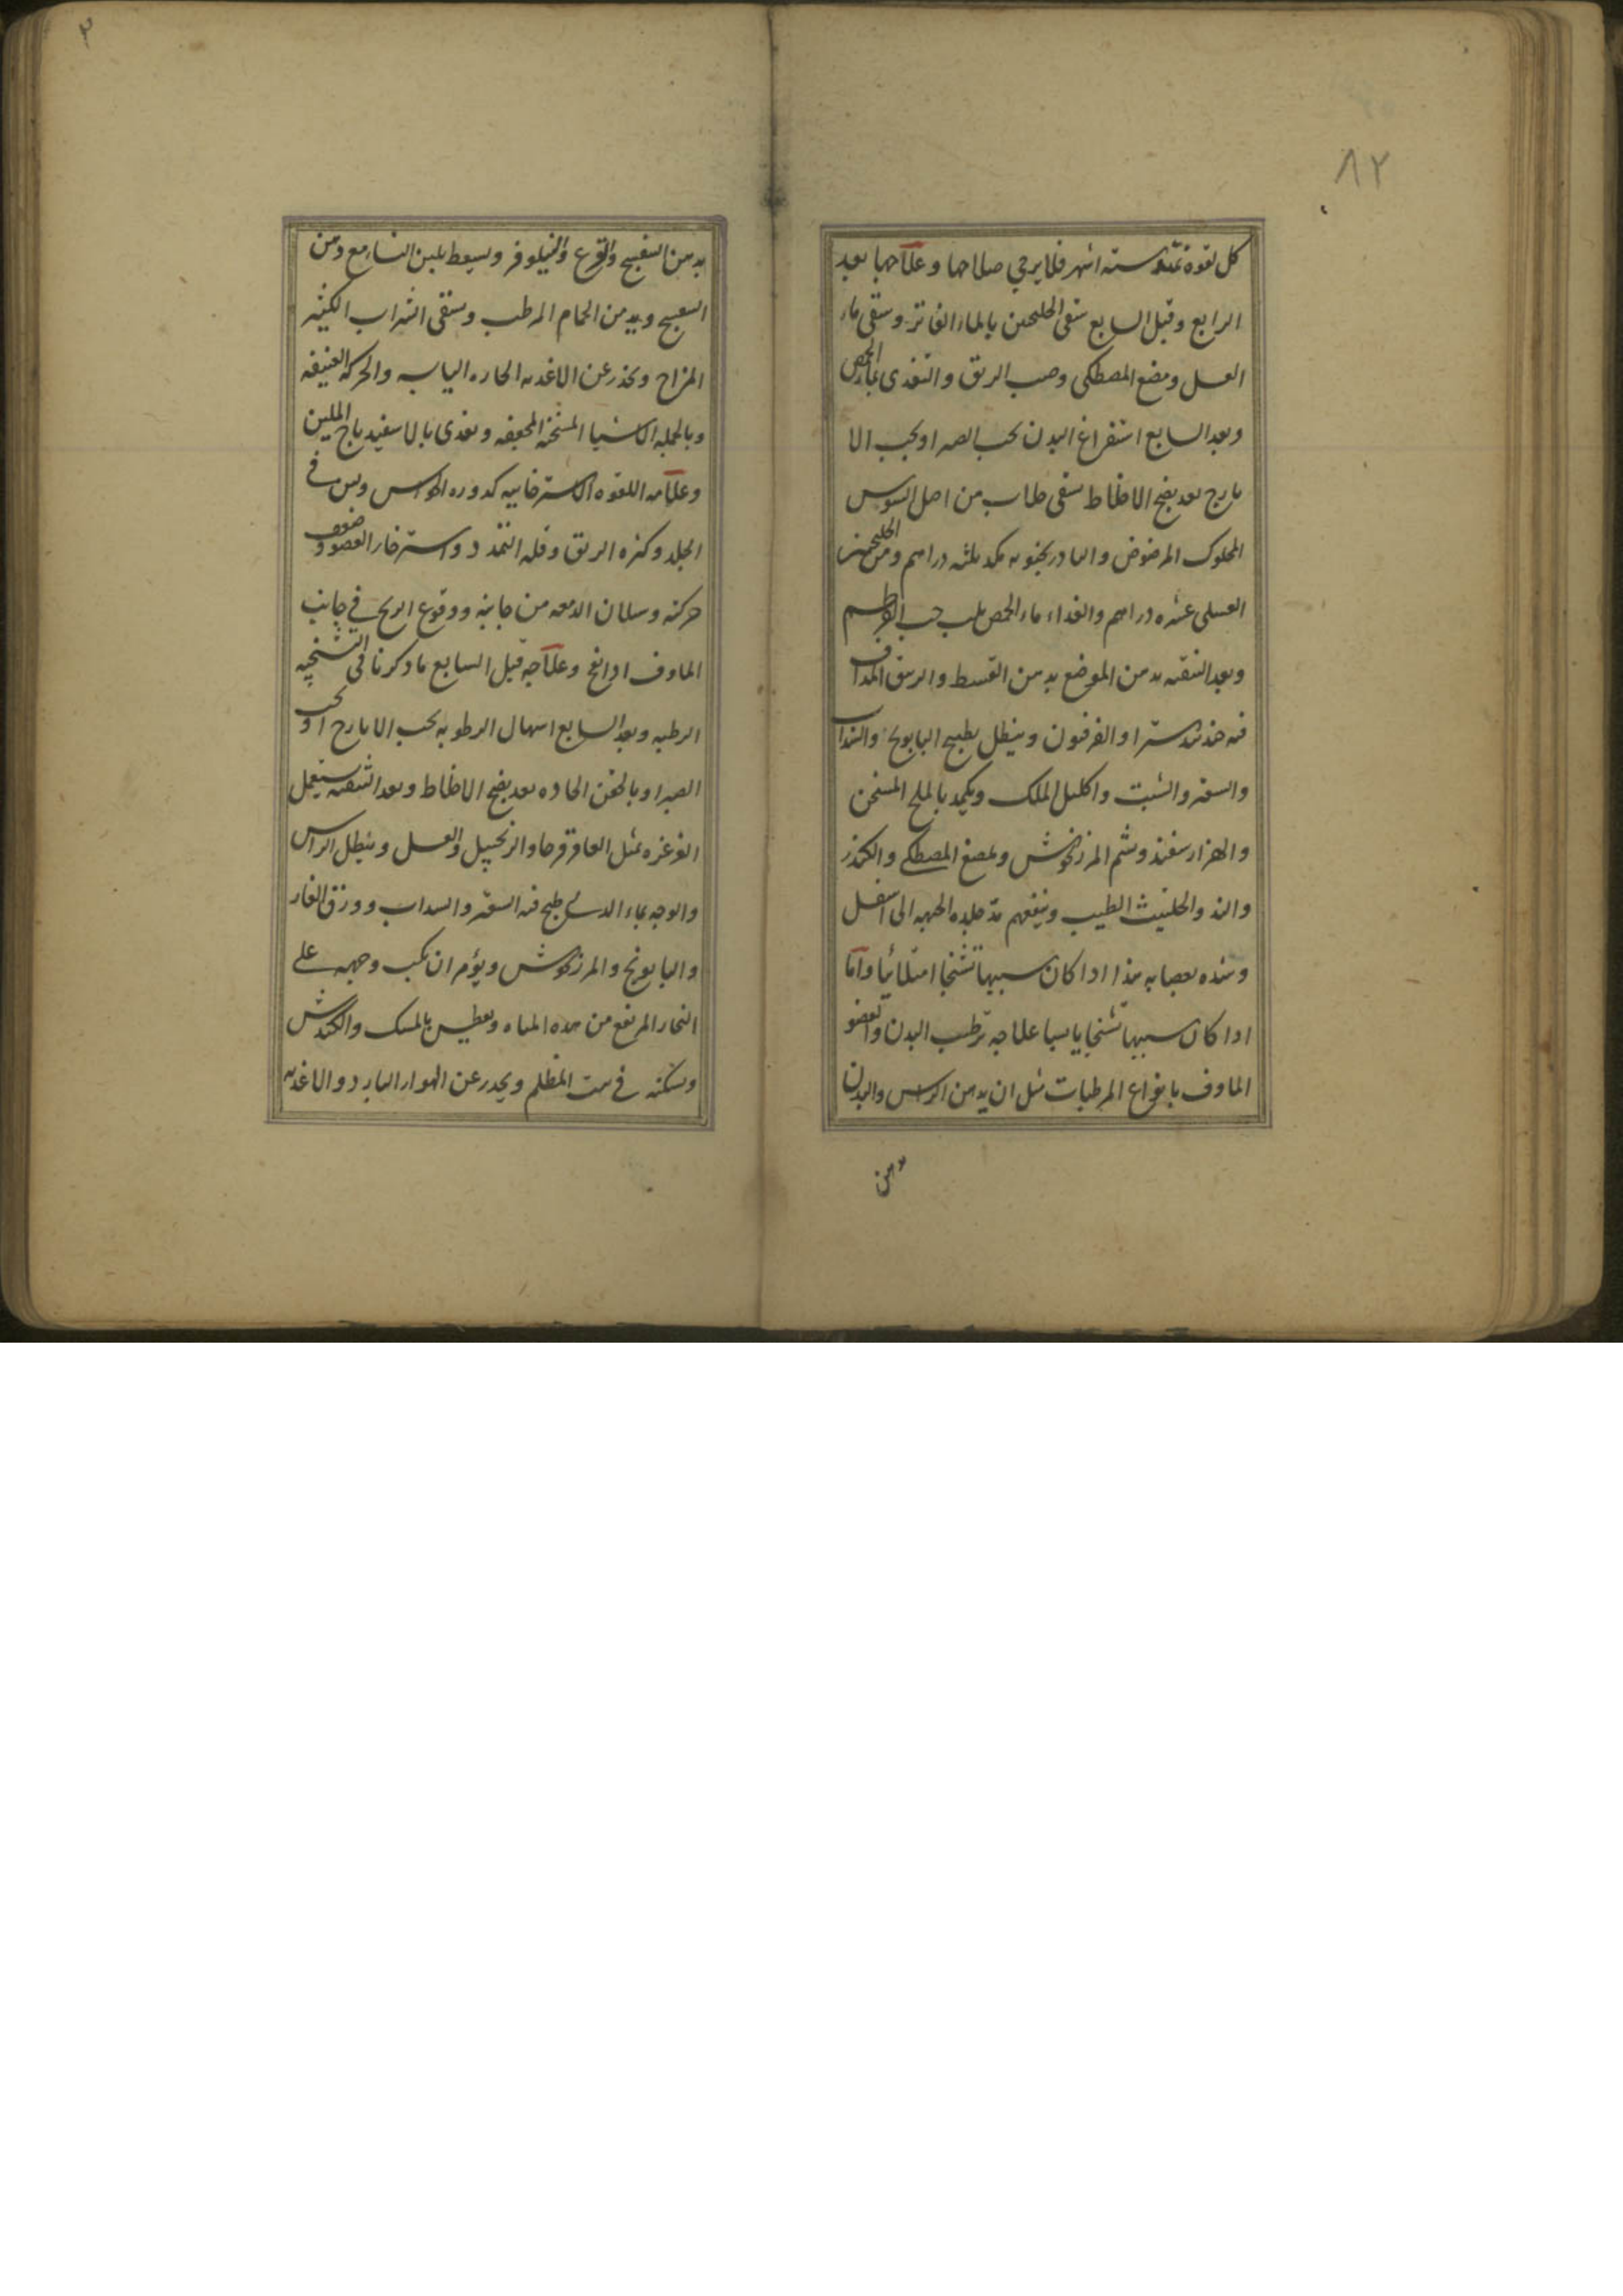 ٨٢
كل لقوه تمتد ستة اشهر فلا يرجى صلاحها وعلاجها بعد
الرابع وقبل السابع سقى الجلنجبين بالماء الفاتر وسقى ماء
العسل ومضغ المصطكى وصب الريق والتغدى بماء الحمص
وبعد السابع استفراغ البدن بحب الصبر او بحب الا
يارج بعد نضج الاخلاط بسقى من اصل السوس
المحلوك المرضوض والبادرنجبويه ثلثه دراهم ومن الجلنجبين
العسلى عشره دراهم والغداء ماء الحمص حب القرطم
وبعد التنقيه يدهن الموضع بدهن القسط والزيبق المداف
فيه جندبيدستر او الفرفيون وينطل بطبيخ البابونج والسداب
والسعتر والشبت واكليل الملك ويكمد بالملح المسخن
والهزار سفند وشم المرزنجوش ويمضغ المصطكى والكندر
والند والحلتيث الطيب وينفعهم مد جلده الجبهه الى اسفل
وشده بعصابه هذا اذا كان سببها تشنجا امتلائيا واما
اذا كان سببها تشنجا يابسا علاجه ترطيب البدن والعضو
الماوف بانواع المرطبات مثل ان يدهن الراس والبدن
بدهن
٣
بدهن البنفسج والقرع والنيلوفر ويسعط بلبن النساء مع دهن
البنفسج ويدمن الحمام المرطب ويسقى الشراب الكثير
المزاج ويحذر عن الاغديه الحاره اليابسه والحركه العنيفه
وبالجمله الاشيا المسخنه المجففه ويغدى بالاسفيدباج الملين
وعلامه اللقوه الاسترخاييه كدوره الحواس ولين فى
الجلد وكثره الريق وقله التمدد واسترخار العضو وضعف
حركته وسيلان الدمعه من جانبه ووقوع الريح فى جانب
الماوف اذا نفخ وعلاجه قبل السابع ما ذكرنا فى التشنجيه
الرطبه وبعد السابع اسهال الرطوبه بحب الايارج او بحب
الصبر او بالحقن الحاده بعد نضج الاخلاط وبعد التنقيه يستعمل
الغرغره بمثل العاقرقرحا والزنجبيل والعسل وينطل الراس
والوجه بماء الذى طبخ فيه السعتر والسداب وورق الغار
والبابونج والمرزنجوش ويؤمر ان يكب وجهه على
البخار المرتفع من هده المياه ويعطس بالمسك والكندش
ويسكنه فى بيت المظلم ويحدر عن الهواء البارد والاغديه